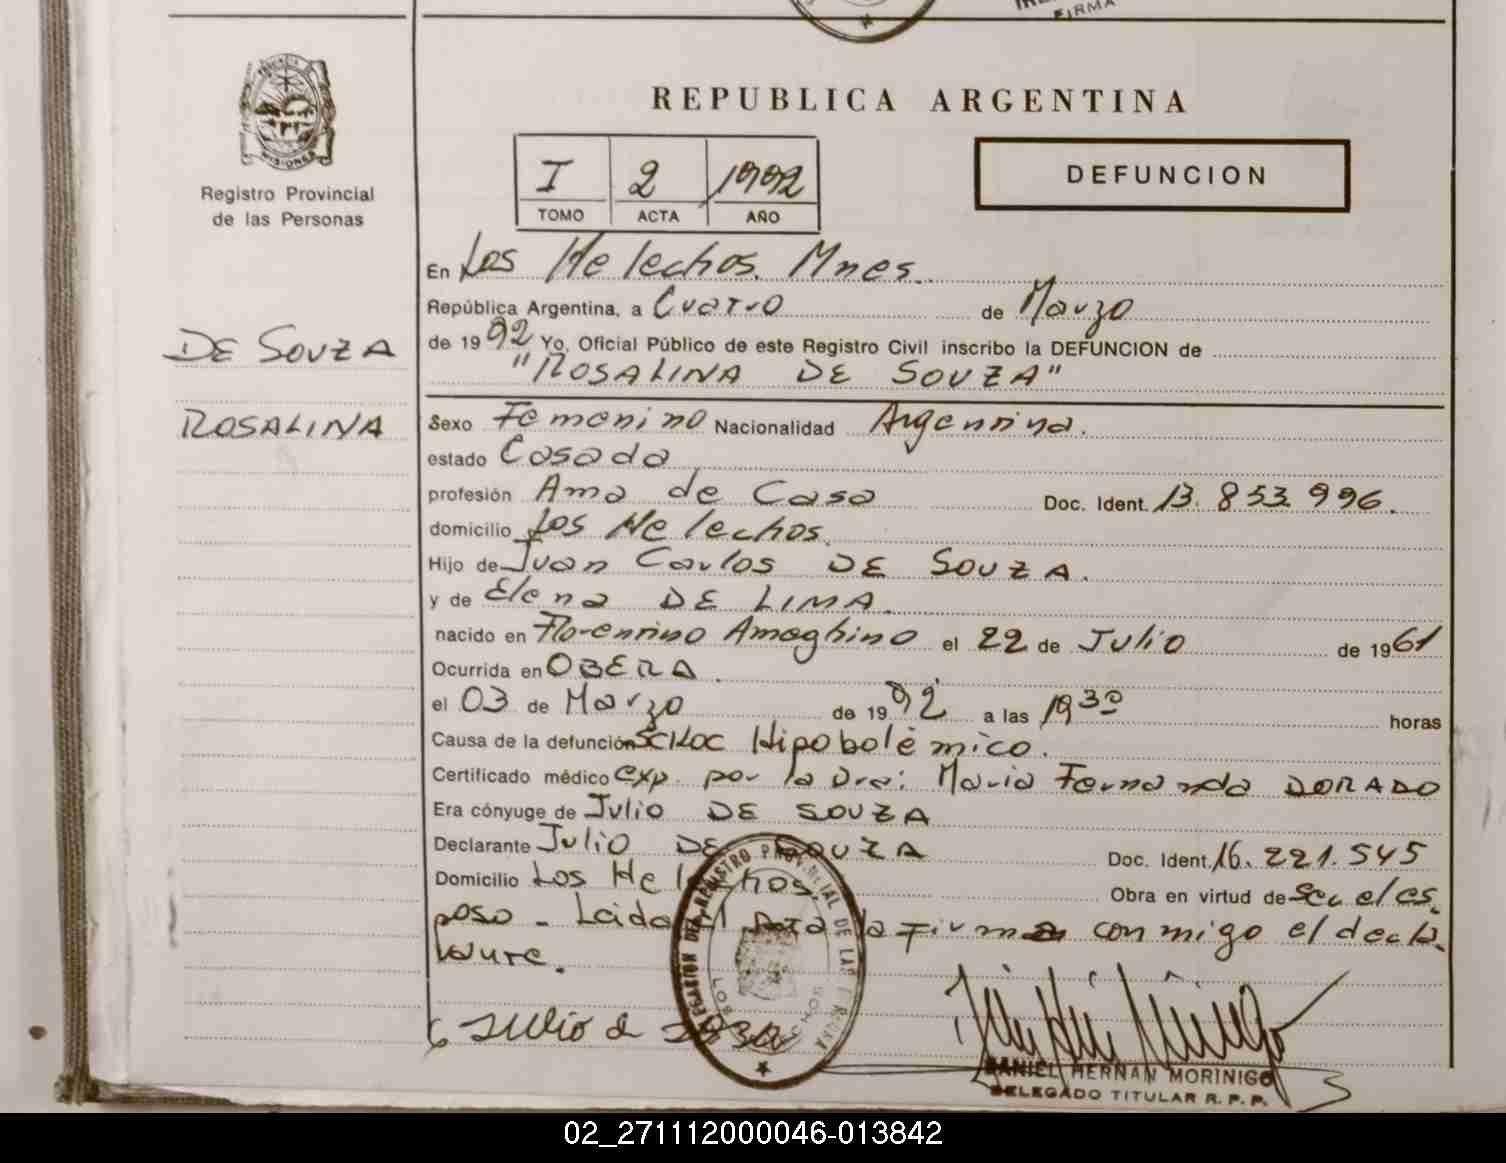 FIRMA
PROVINCIA
MISIONES
Registro Provincial
de las Personas
REPUBLICA ARGENTINA
I 2 1992
TOMO ACTA AÑO
DEFUNCION
En Los Helechos. Mnes.
República Argentina, a Cuatro de Marzo
de 1992 Yo, Oficial Público de este Registro Civil inscribo la DEFUNCION de
"ROSALINA DE SOUZA"
DE SOUZA
ROSALINA
Sexo Femenino Nacionalidad Argentina.
estado Casada
profesión Ama de Casa Doc. Ident. 13.853.996.
domicilio Los Helechos.
Hijo de Juan Carlos DE SOUZA.
y de Elena DE LIMA.
nacido en Florentino Ameghino el 22 de Julio de 1961
Ocurrida en OBERA.
el 03 de Marzo de 1992 a las 19 30 horas
Causa de la defunción SCHOC Hipobolémico.
Certificado médico exp. por la Dra: Maria Fernanda DORADO
Era cónyuge de Julio DE SOUZA
Declarante Julio DE SOUZA Doc. Ident. 16.221.545
Domicilio Los Helechos Obra en virtud de Ser el es
poso - Leida el Acta la Firma conmigo el decla
rante.
Julio de
DANIEL HERNAN MORINIGO
DELEGADO TITULAR R. P. P.
02_271112000046-013842